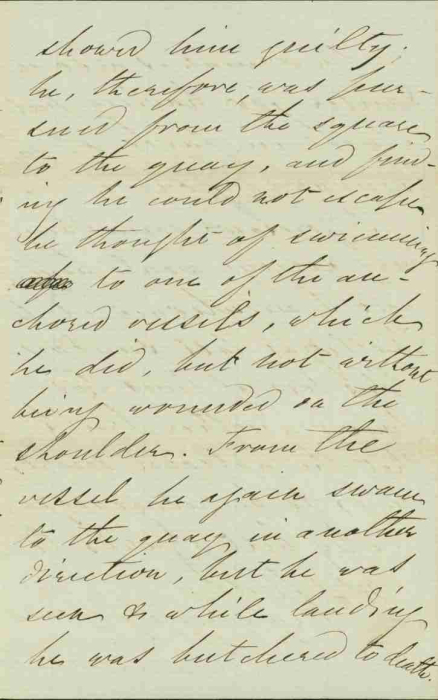 showed him guilty;
he, therefore, was pur-
sued from the square
to the quay, and find-
ing he could not escape
he thought of swimming
to one of the an-
chored vessels, which
he did, but not without
being wounded on the
shoulder. From the
vessel he again swam
to the quay in another
direction, but he was
seen & while landing
he was butchered to death.